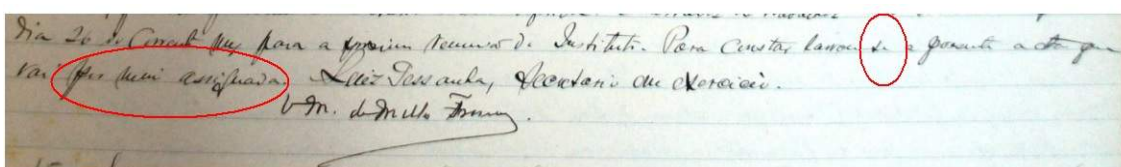 dia 26 do Corrente mez para a proxima reunião do Instituto. Para Constar lavrou se a presente acta que
vai por mim assignada. Luiz Pessanha, Secretario em exercicio.
V. M. de Mello Franco.